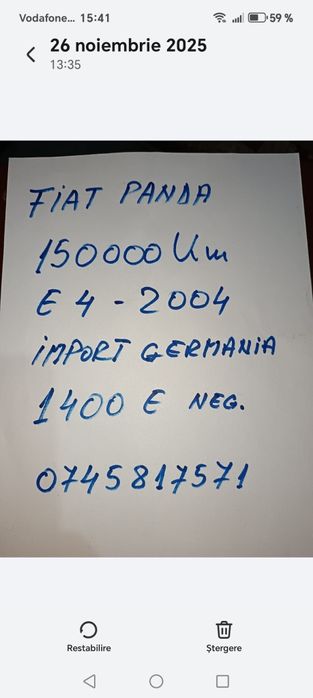 Vodafone... 15:41 59 %
26 noiembrie 2025
13:35
FIAT PANDA
150000 Km
E 4 - 2004
IMPORT GERMANIA
1400 E NEG.
0745817571
Restabilire
Ștergere